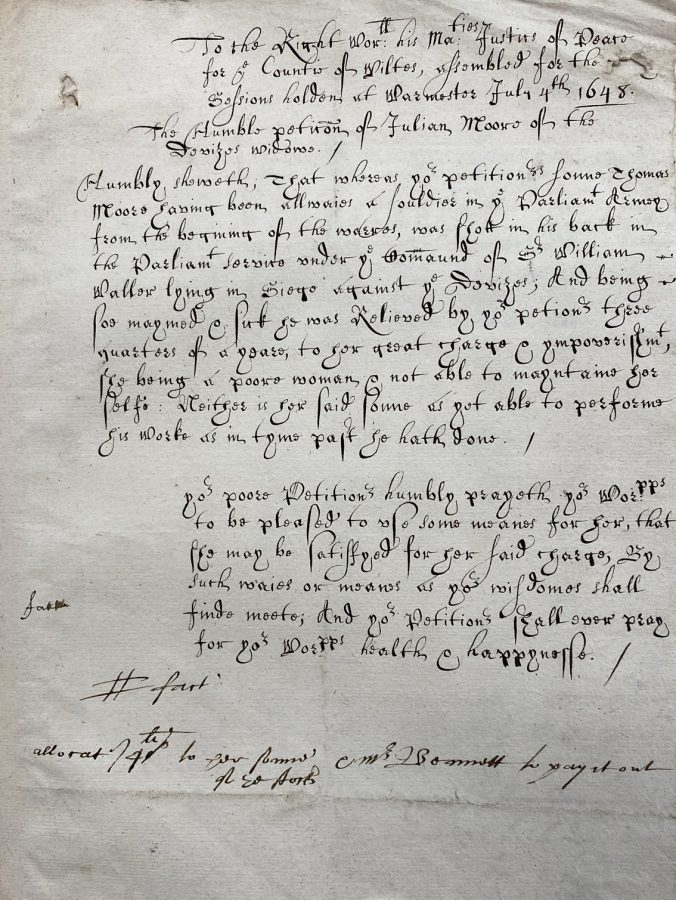 To the Right Wor:tt his Ma:ties Justics of Peace
for ye Countie of Wiltes, assembled for the
Sessions holden at Warmester July 4th 1648.
The Humble peticōn of Julian Moore of the
Devizes widowe. /
Humbly sheweth, That whereas yor petitionrs sonne Thomas
Moore having been allwaies a souldier in ye Parliamt Armey
from the beginng of the warres, was shott in his back in
the Parliamt service vnder ye Com̄aund of Sr William
Waller lying in Siege against ye Devizes; And being
soe maymed & sick he was Relieved by yor petionr three
quarters of a yeare, to her great charge & ympoverishmt,
she being a poore woman & not able to mayntaine her
selfe: Neither is her said sonne as yet able to performe
his worke as in tyme past he hath done. /
yor poore Petitionr humbly prayeth yor Wor:pps
to be pleased to vse some meanes for her, that
she may be satisfyed for her said charge, By
such waies or meanes as yor wisdomes shall
finde meete; And yor Petitionr shall ever pray
for yor Worpps health & happynesse. /
fact
allocat 4li to her sonne & Mr Bennett to pay it out
of ye stock